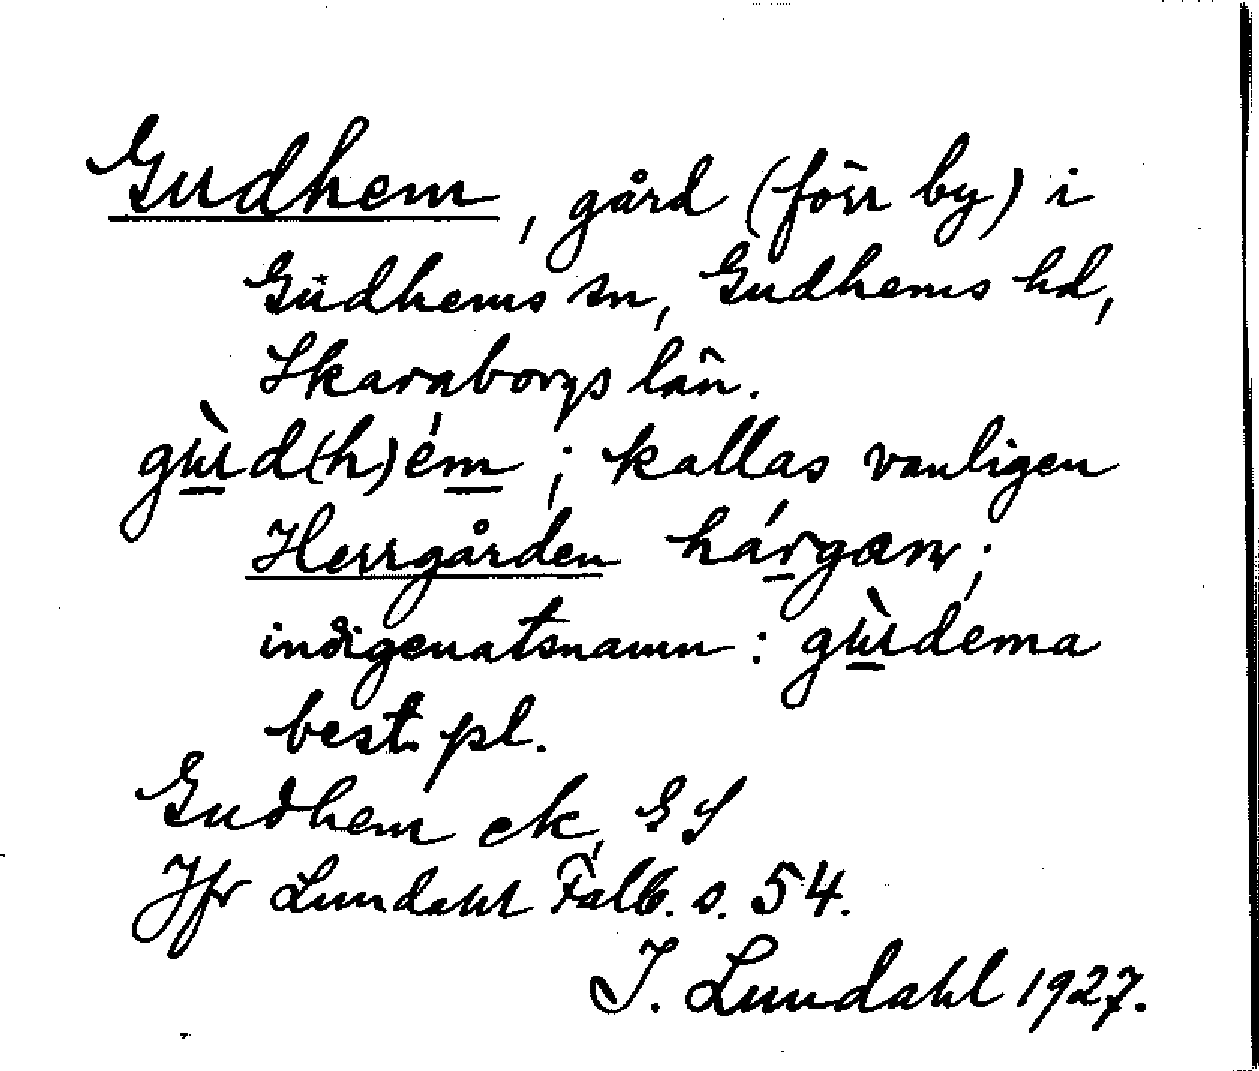 Gudhem, gård (förr by) i
Gudhems sn, Gudhems hd,
Skaraborgs län.
gùd(h)ém; kallas vanligen
Herrgården hárgan;
indigenatsnamn: gùdema
best. pl.
Gudhem ek, GS
Jfr Lundahl Falb. s. 54.
I. Lundahl 1927.